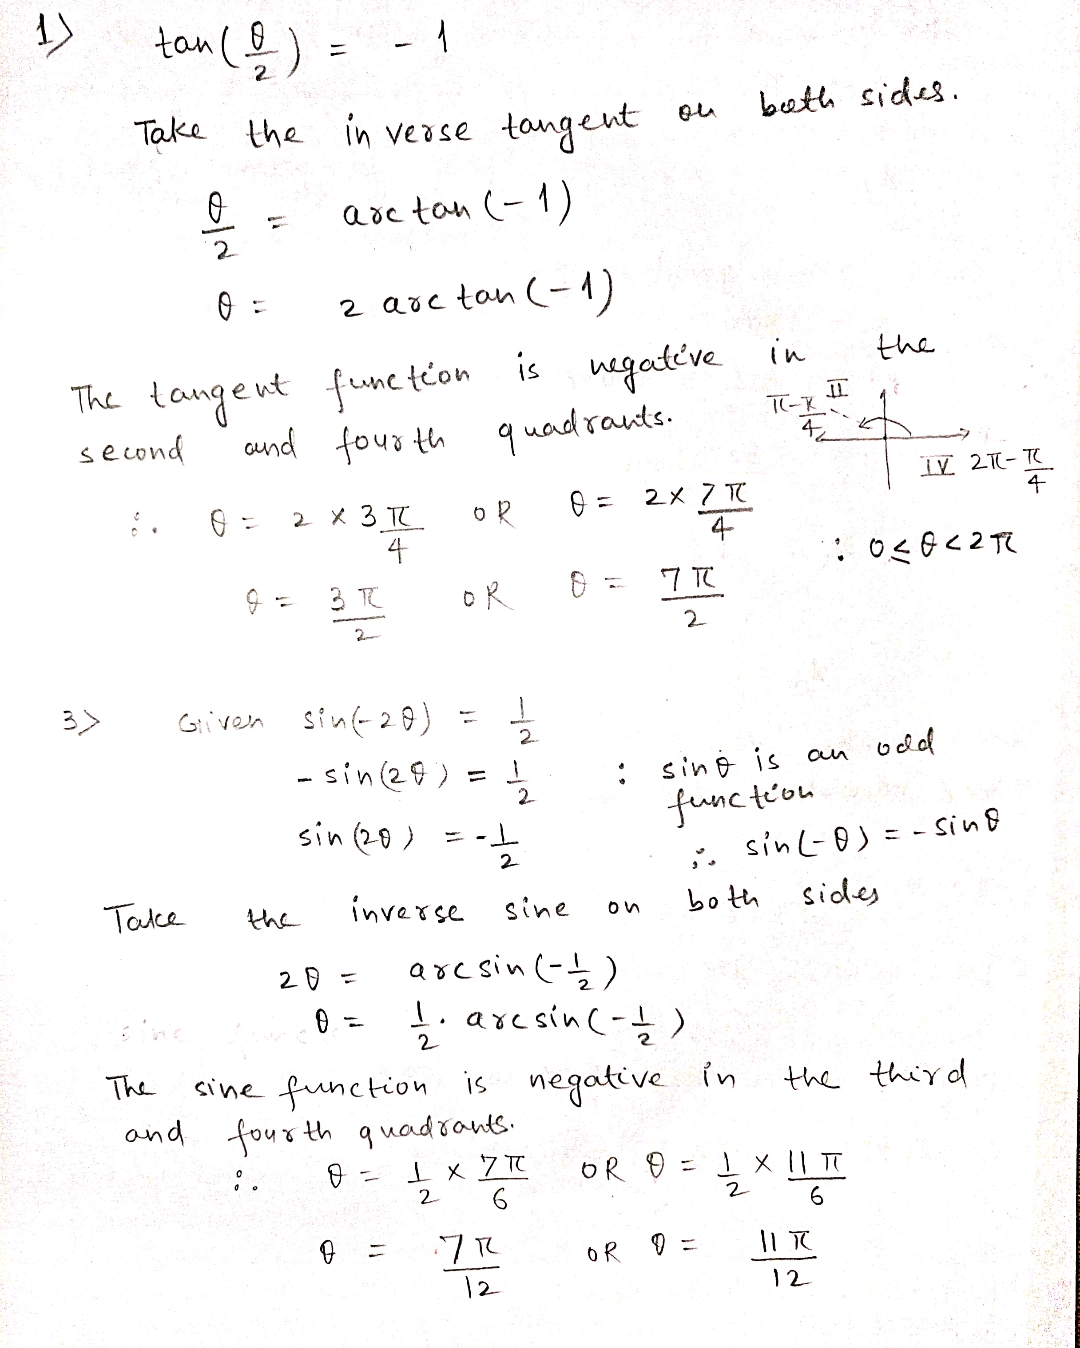 1> tan(θ/2) = - 1
Take the inverse tangent on both sides.
θ/2 = arctan(-1)
θ = 2 arctan(-1)
The tangent function is negative in the
second and fourth quadrants.
π-π/4 II
IV 2π-π/4
∴ θ = 2 × 3π/4 OR θ = 2× 7π/4 : 0≤θ<2π
θ = 3π/2 OR θ = 7π/2
3> Given sin(-2θ) = 1/2
- sin(2θ) = 1/2 : sinθ is an odd
function
sin(2θ) = -1/2 ∴ sin(-θ) = - sinθ
Take the inverse sine on both sides
2θ = arcsin(-1/2)
θ = 1/2 · arcsin(-1/2)
The sine function is negative in the third
and fourth quadrants.
∴ θ = 1/2 × 7π/6 OR θ = 1/2 × 11π/6
θ = 7π/12 OR θ = 11π/12